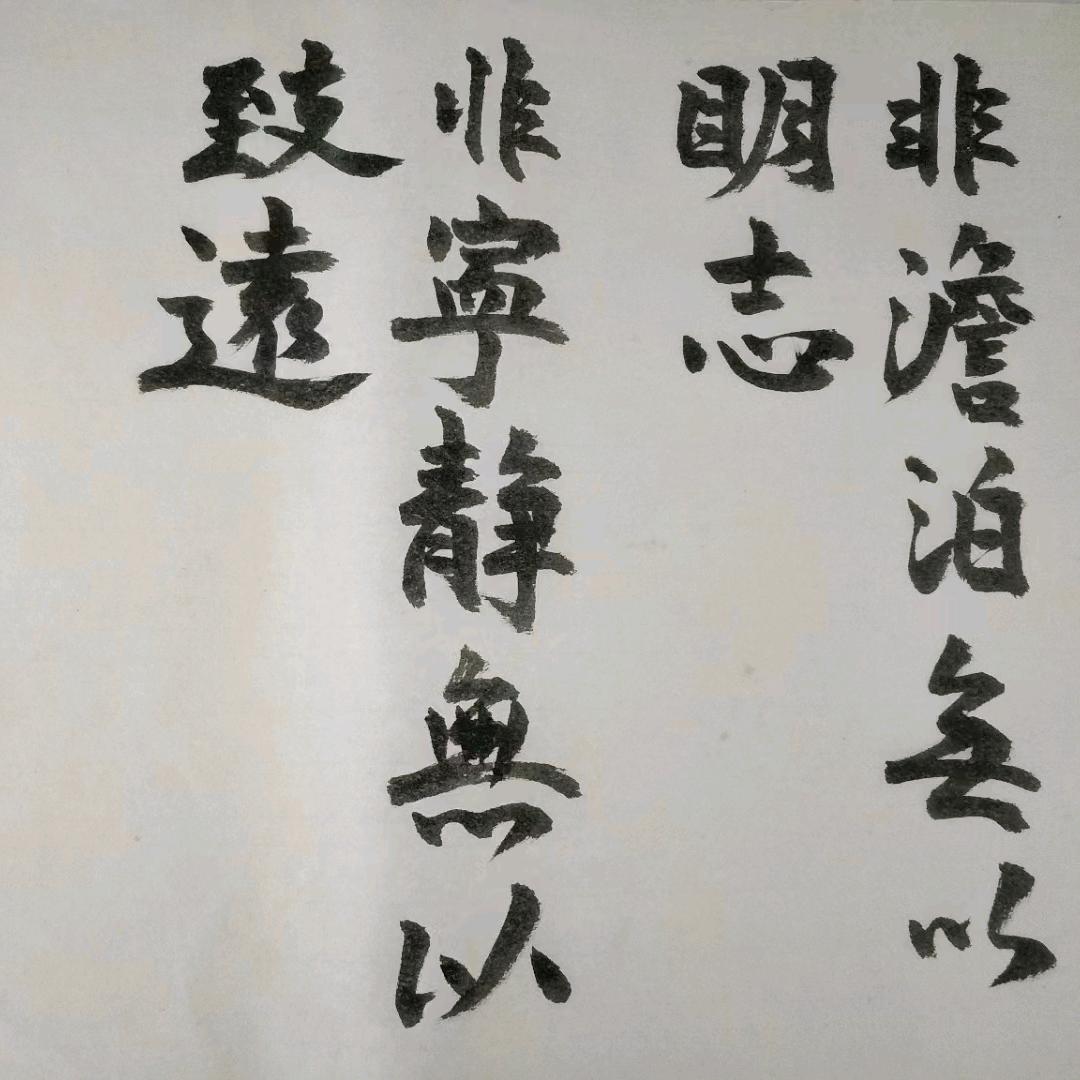 非澹泊無以
明志
非寧静無以
致遠